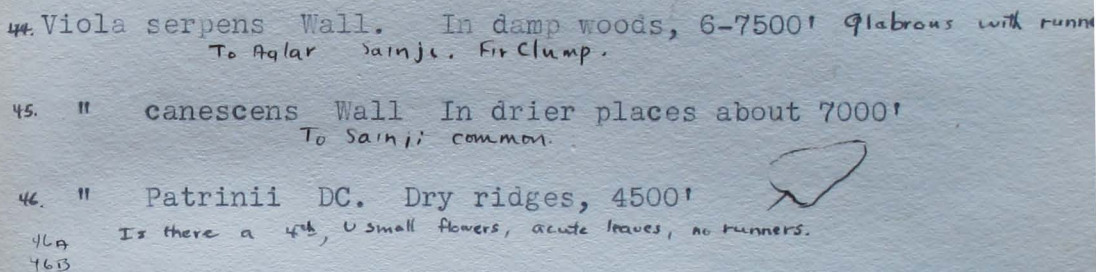 44. Viola serpens Wall. In damp woods, 6-7500' Glabrous with runne
To Aglar Sainji. Fir Clump.
45. " canescens Wall In drier places about 7000'
To Sainji common.
46. " Patrinii DC. Dry ridges, 4500'
46A Is there a 4th, U small flowers, acute leaves, no runners.
46B